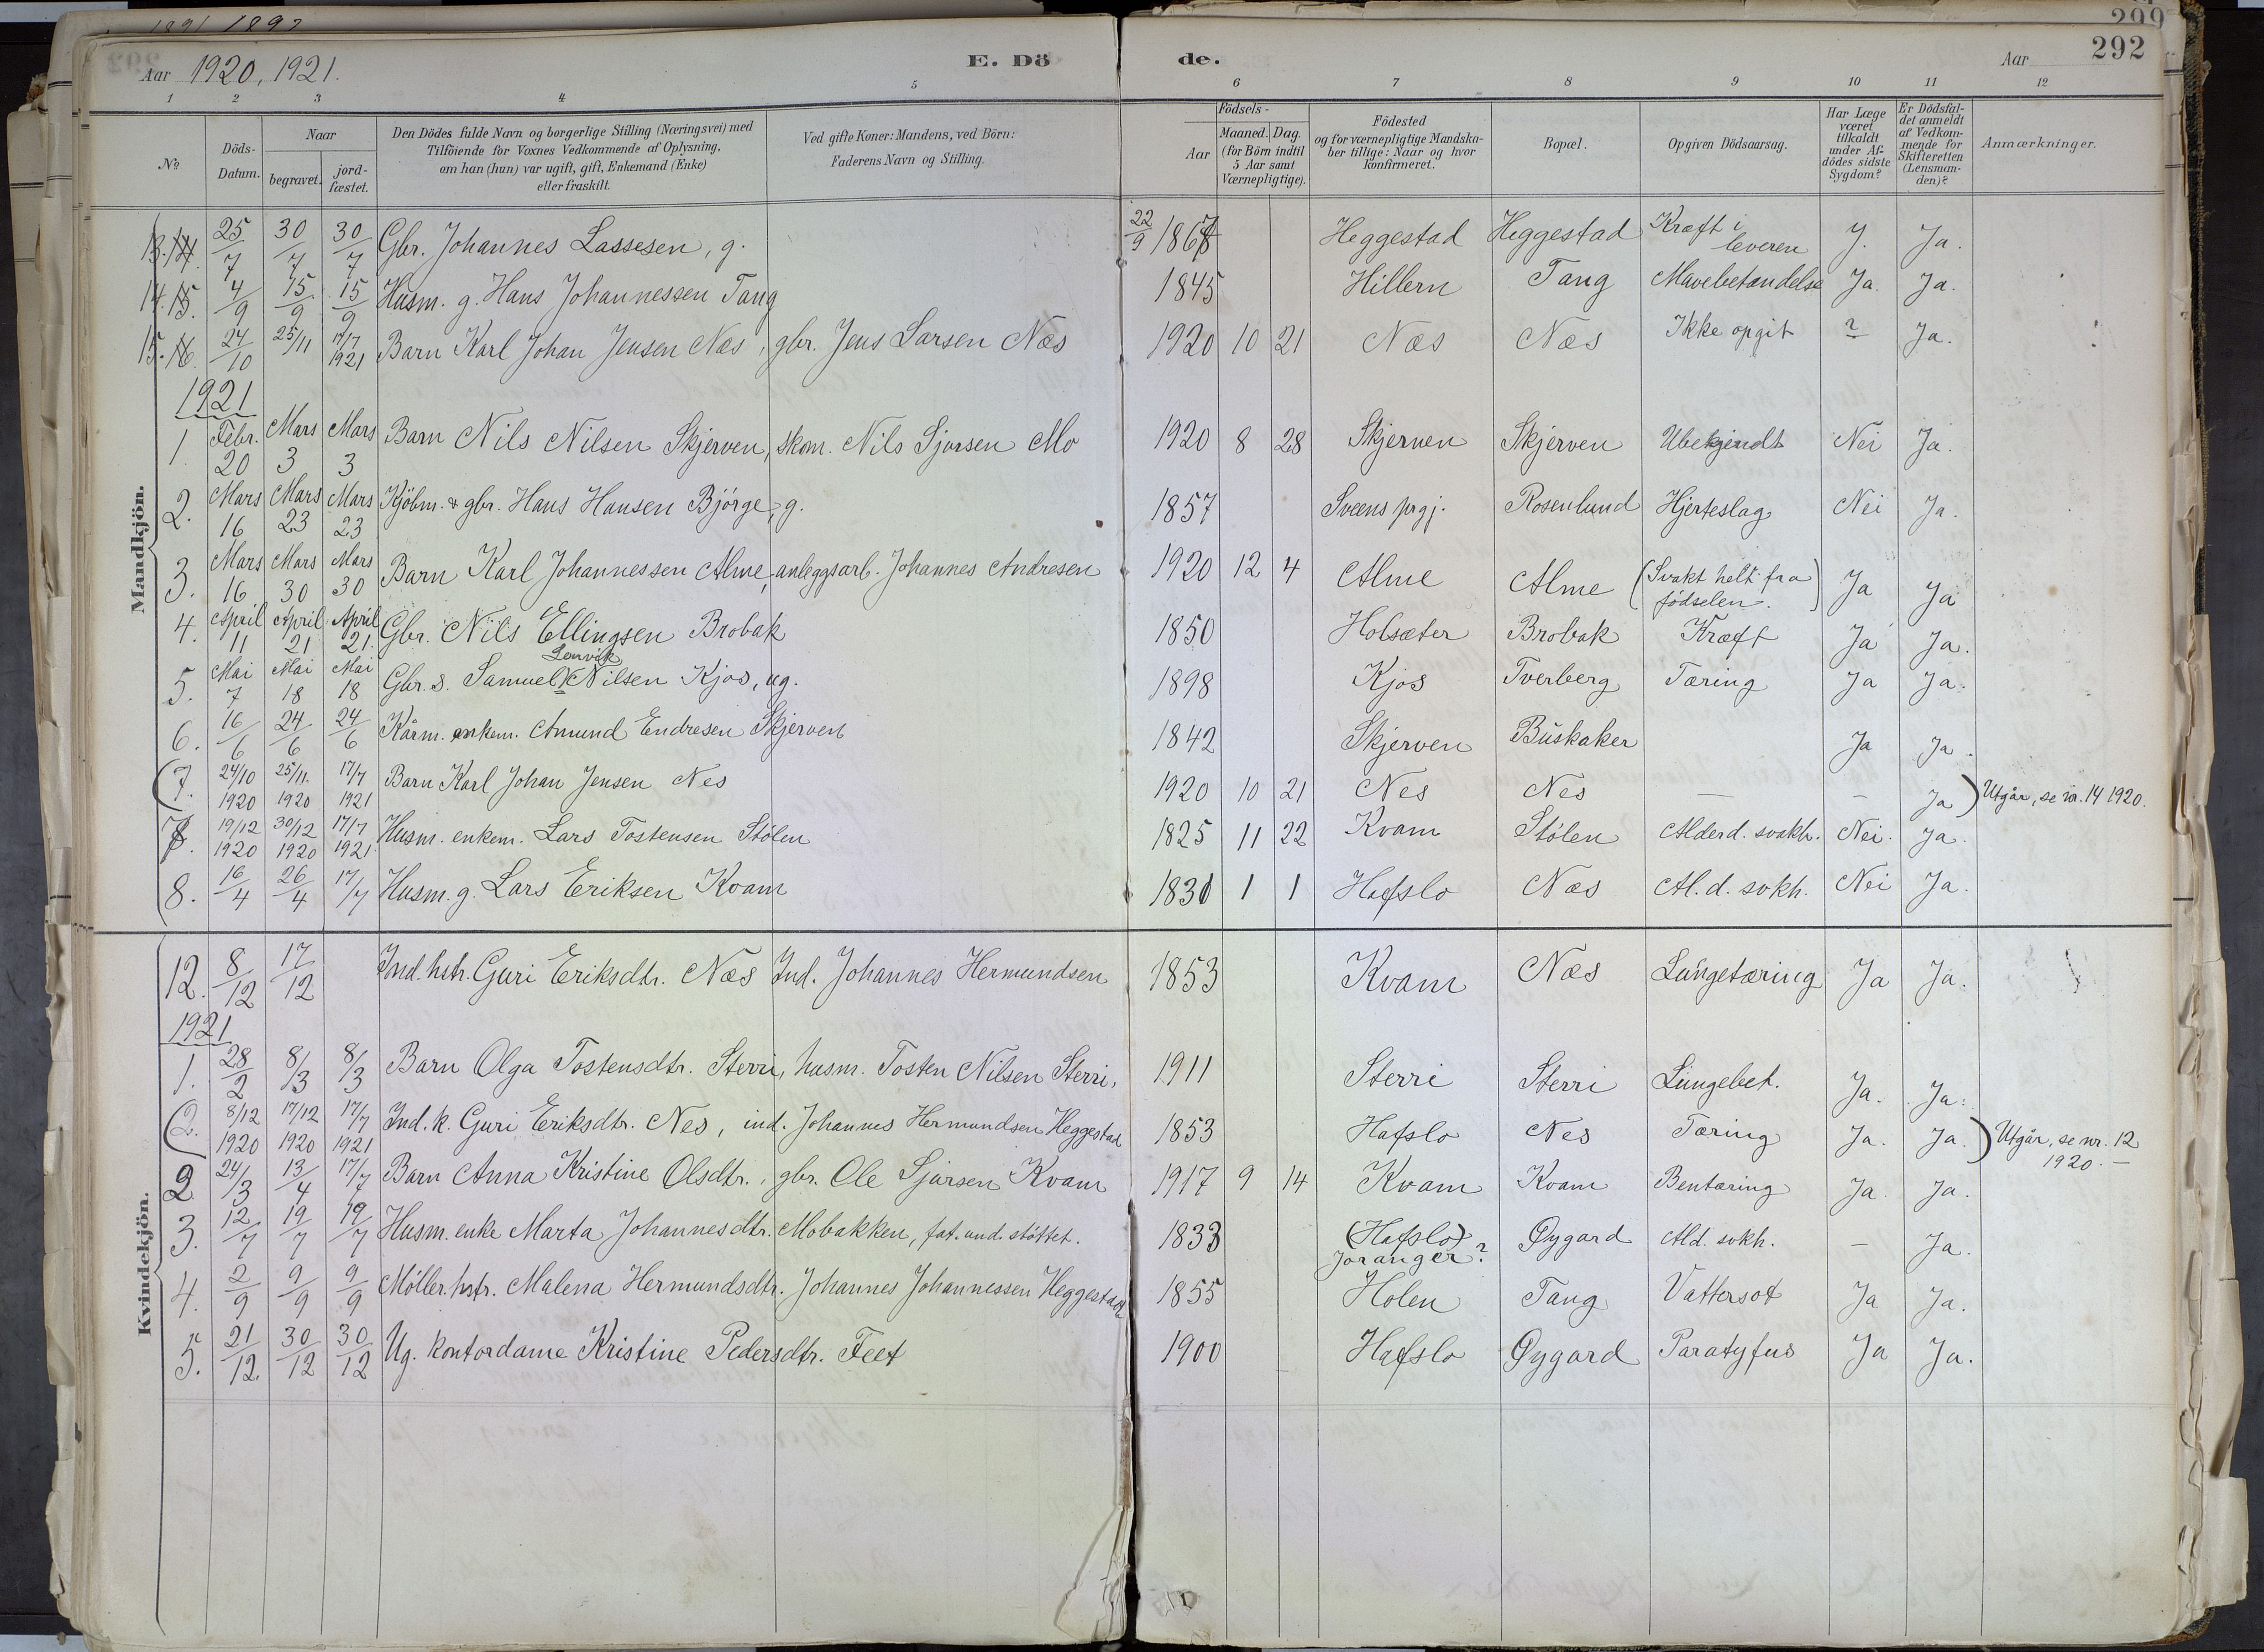 1891 1892
299
Aar 1920, 1921. E. Dö de. Aar 292
1 2 3 4 5 6 7 8 9 10 11 12
No Döds-Datum. Naar begravet. jord-fæstet. Den Dödes fulde Navn og borgerlige Stilling (Næringsvei) med Tilföiende for Voxnes Vedkommende af Oplysning, om han (hun) var ugift, gift, Enkemand (Enke) eller fraskilt. Ved gifte Koner: Mandens, ved Börn: Faderens Navn og Stilling. Födsels- Aar Maaned. Dag. (for Börn indtil 5 Aar samt Værnepligtige). Födested og for værnepligtige Mandskaber tillige: Naar og hvor Konfirmeret. Bopæl. Opgiven Dödsaarsag. Har Læge været tilkaldt under Afdödes sidste Sygdom? Er Dödsfaldet anmeldt af Vedkommende for Skifteretten (Lensmanden)? Anmærkninger.
Mandkjön.
13. 14. 25/7 30/7 30/7 Gbr. Johannes Lassesen, g. 22/9 1867 Heggestad Heggestad Kræft i leveren J. Ja.
14. 15. 4/9 15/9 15/9 Husm. g. Hans Johannessen Tang 1845 Hillern Tang Mavebetændelse Ja. Ja.
15. 16. 24/10 25/11 17/7 1921 Barn Karl Johan Jensen Næs, gbr. Jens Larsen Næs 1920 10 21 Næs Næs Ikke opgit ? Ja.
1921
1. Febr. 20 Mars 3 Mars 3 Barn Nils Nilsen Skjerven, skom. Nils Sjursen Mo 1920 8 28 Skjerven Skjerven Ubekjendt Nei Ja.
2. Mars 16 Mars 23 Mars 23 Kjöbm. & gbr. Hans Hansen Björge, g. 1857 Sveens prgj. Rosenlund Hjerteslag Nei Ja.
3. Mars 16 Mars 30 Mars 30 Barn Karl Johannessen Alme, anleggsarb. Johannes Andresen 1920 12 4 Alme Alme (Svakt helt fra födselen.) Ja Ja
4. April 11 April 21 April 21. Gbr. Nils Ellingsen Brobak 1850 Holsæter Brobak Kræft Ja Ja.
5. Mai 7 Mai 18 Mai 18 Gbr. s. Samuel Lenvik Nilsen Kjos, ug. 1898 Kjos Tverberg Tæring Ja Ja.
6. 16/6 24/6 24/6 Kårm. enkem. Amund Endresen Skjerven 1842 Skjerven Buskaker Ja Ja.
(7. 24/10 1920 25/11. 1920 17/7 1921 Barn Karl Johan Jensen Nes 1920 10 21 Nes Nes — — Ja) Utgår, se nr. 14 1920.
7. 19/12 1920 30/12 1920 17/7 1921. Husm. enkem. Lars Tostensen Stölen 1825 11 22 Kvam Stölen Alderd. svakh. Nei. Ja.
8. 16/4 26/4 17/7 Husm. g. Lars Eriksen Kvam 1831 1 1 Hafslo Næs Al. d. svkh. Nei Ja.
Kvindekjön.
12. 8/12 17/12 Ind. hstr. Guri Eriksdtr. Næs Ind. Johannes Hermundsen 1853 Kvam Næs Lungetæring Ja Ja.
1921
1. 28/2 8/3 8/3 Barn Olga Tostensdtr. Sterri, husm. Tosten Nilsen Sterri, 1911 Sterri Sterri Lungebet. Ja. Ja.
(2. 8/12 1920 17/12 1920 17/7 1921 Ind. k. Guri Eriksdtr. Nes, ind. Johannes Hermundsen Heggestad 1853 Hafslo Nes Tæring Ja. Ja.) Utgår, se nr. 12 1920.—
2 24/3 13/4 17/7 Barn Anna Kristine Olsdtr., gbr. Ole Sjursen Kvam 1917 9 14 Kvam Kvam Bentæring Ja Ja.
3. 12/7 19/7 19/7 Husm. enke Marta Johannesdtr. Mobakken, fat. und. stöttet. 1833 (Hafslo) Joranger? Öygard Ald. svkh. — Ja.
4. 2/9 9/9 9/9 Möller. hstr. Malena Hermundsdtr. Johannes Johannessen Heggestad 1855 Holen Tang Vattersot Ja Ja.
5. 21/12. 30/12 30/12 Ug. kontordame Kristine Pedersdtr. Feet 1900 Hafslo Öygard Paratyfus Ja Ja.